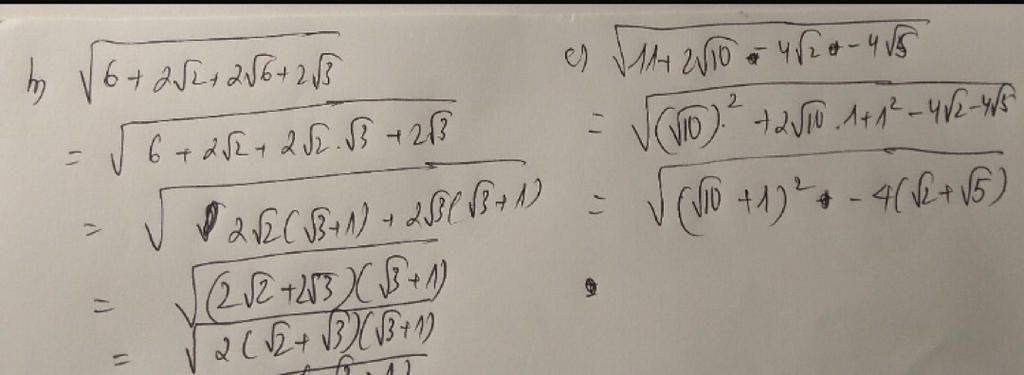 b) √(6 + 2√2 + 2√6 + 2√3)
= √(6 + 2√2 + 2√2 . √3 + 2√3)
= √(2√2(√3+1) + 2√3(√3+1))
= √((2√2 + 2√3)(√3+1))
= √(2(√2 + √3)(√3+1))
c) √(11 + 2√10 - 4√2 - 4√5)
= √((√10)² + 2√10 . 1 + 1² - 4√2 - 4√5)
= √((√10 + 1)² - 4(√2 + √5))